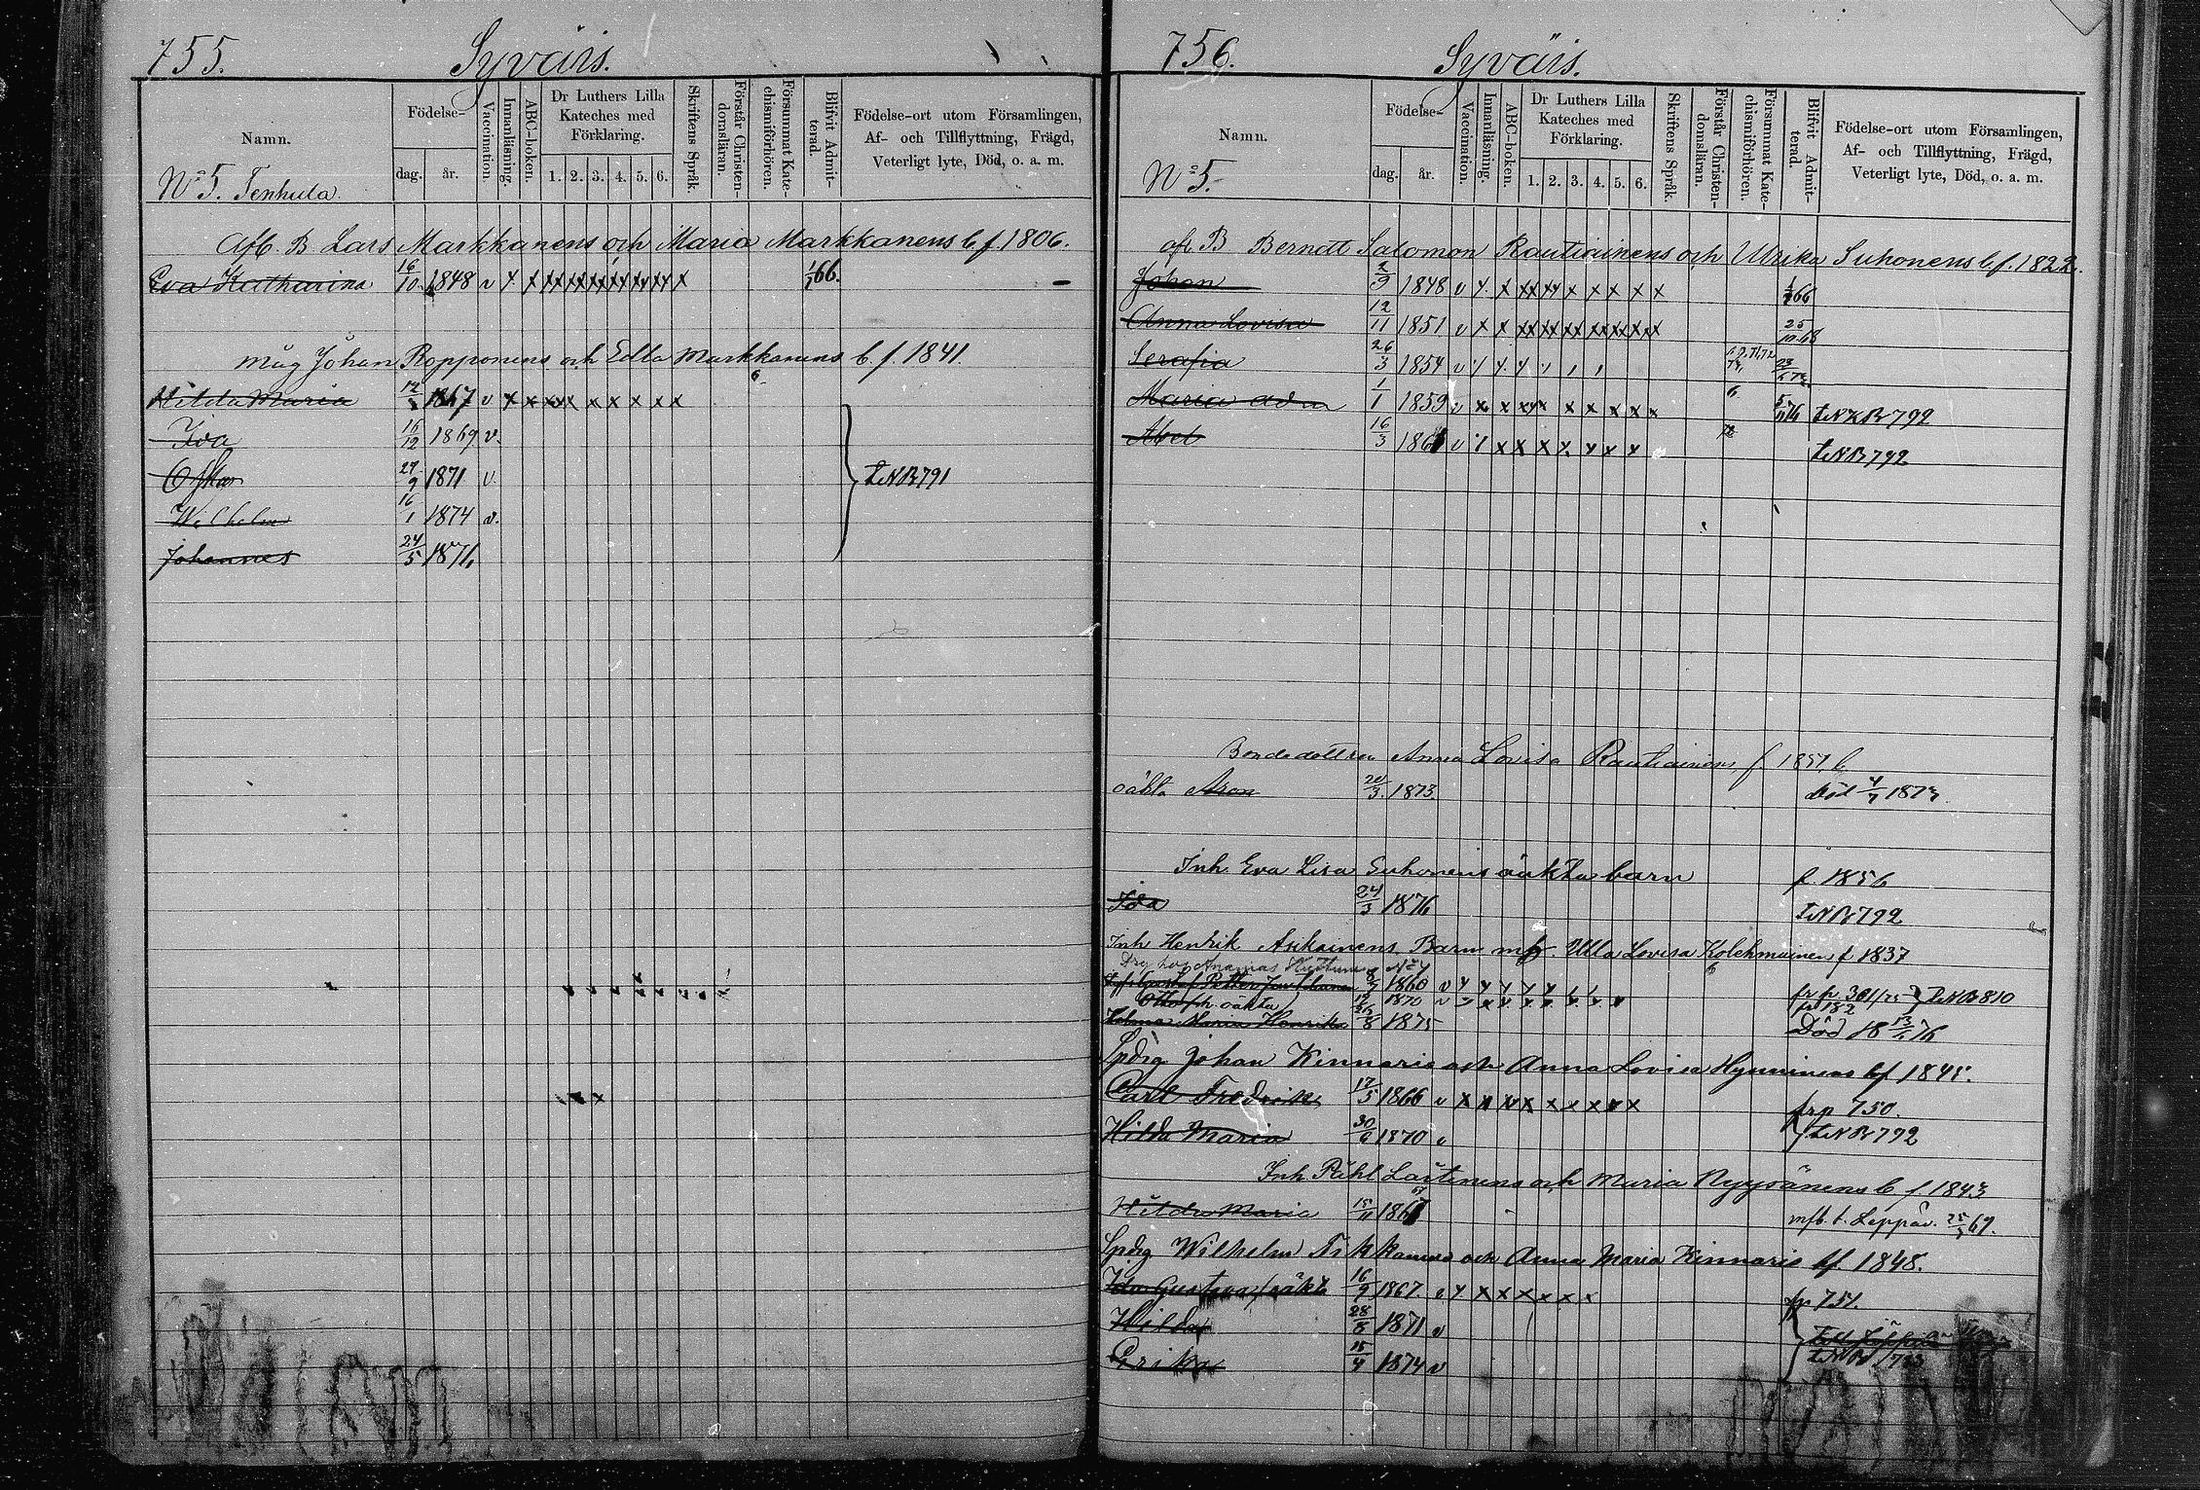 755. Syväris.
Namn. Födelse- dag. år. Vaccination. Innanläsning. ABC-boken. Dr Luthers Lilla Kateches med Förklaring. 1. 2. 3. 4. 5. 6. Skriftens Språk. Förstår Christen-domsläran. Försummat Kate-chismiförhören. Blifvit Admit-terad. Födelse-ort utom Församlingen, Af- och Tillflyttning, Frägd, Veterligt lyte, Död, o. a. m.
No 5. Tenhula.
Afl. B Lars Markkanens och Maria Markkanens b. f. 1806.
Eva Katharina 16/10 1848 v x x x x x x x x x x 66. –
måg Johan Ropponens och Edla Markkanens b. f. 1841.
Hilda Maria 1867 v x x x x x x x x x
Ida 16/12 1869 v.
Oskar 27/9 1871 v. t.N.B. 791
Wilhelm 16/1 1874 v.
Johannes 24/5 1876
756. Syväris.
Namn. Födelse- dag. år. Vaccination. Innanläsning. ABC-boken. Dr Luthers Lilla Kateches med Förklaring. 1. 2. 3. 4. 5. 6. Skriftens Språk. Förstår Christen-domsläran. Försummat Kate-chismiförhören. Blifvit Admit-terad. Födelse-ort utom Församlingen, Af- och Tillflyttning, Frägd, Veterligt lyte, Död, o. a. m.
No 5.
afl. B Berndt Salomon Rautiainens och Ulrika Suhonens b. f. 1822.
Johan 2/9 1848 v x x x x x x x x x 66
Anna Lovisa 12/11 1851 v x x x x x x x x x 25/10 68
Serafia 26/3 1854 v
Maria 1/1 1859 v x x x x x x x x x 76 t.N.B. 792
Abel 16/3 186 v x x x x x x x t.N.B. 792
Bondedottren Anna Lovisa Rautiainens f 1851 b
oäkta Aron 20/3. 1873. Död 4/7 1873.
Inh. Eva Lisa Suhonens oäkta barn f. 1856
Ida 24/3 1876 t.N.B. 792
Inh Henrik Asikainens Barn m. Ulla Lovisa Kolehmainen f 1837
Gustaf Petter 1860 v fr p. 301/75 t.N.B. 810
Otto oäkta 1870 v
Maria Henrika 1875 Död 18 76
Spdrg Johan Kinnaris och Anna Lovisa Hynninens bf 1845.
Carl Fredrik 17/5 1866 v x x x x x x x x x frp 750.
Hilda Maria 30/6 1870 v t.N.B. 792
Inh Påhl Lastunens och Maria Nyyssönens b f 1843
Hilda Maria 15/11 186 mfb. t. Leppäv. 69.
Spdrg Wilhelm Tikkanens och Anna Maria Kinnaris bf. 1848.
Ida Gustava oäkt 16/9 1867. v x x x x x x x fp 751.
Hilda 28/8 1871 v
Erika 15/4 1874 v